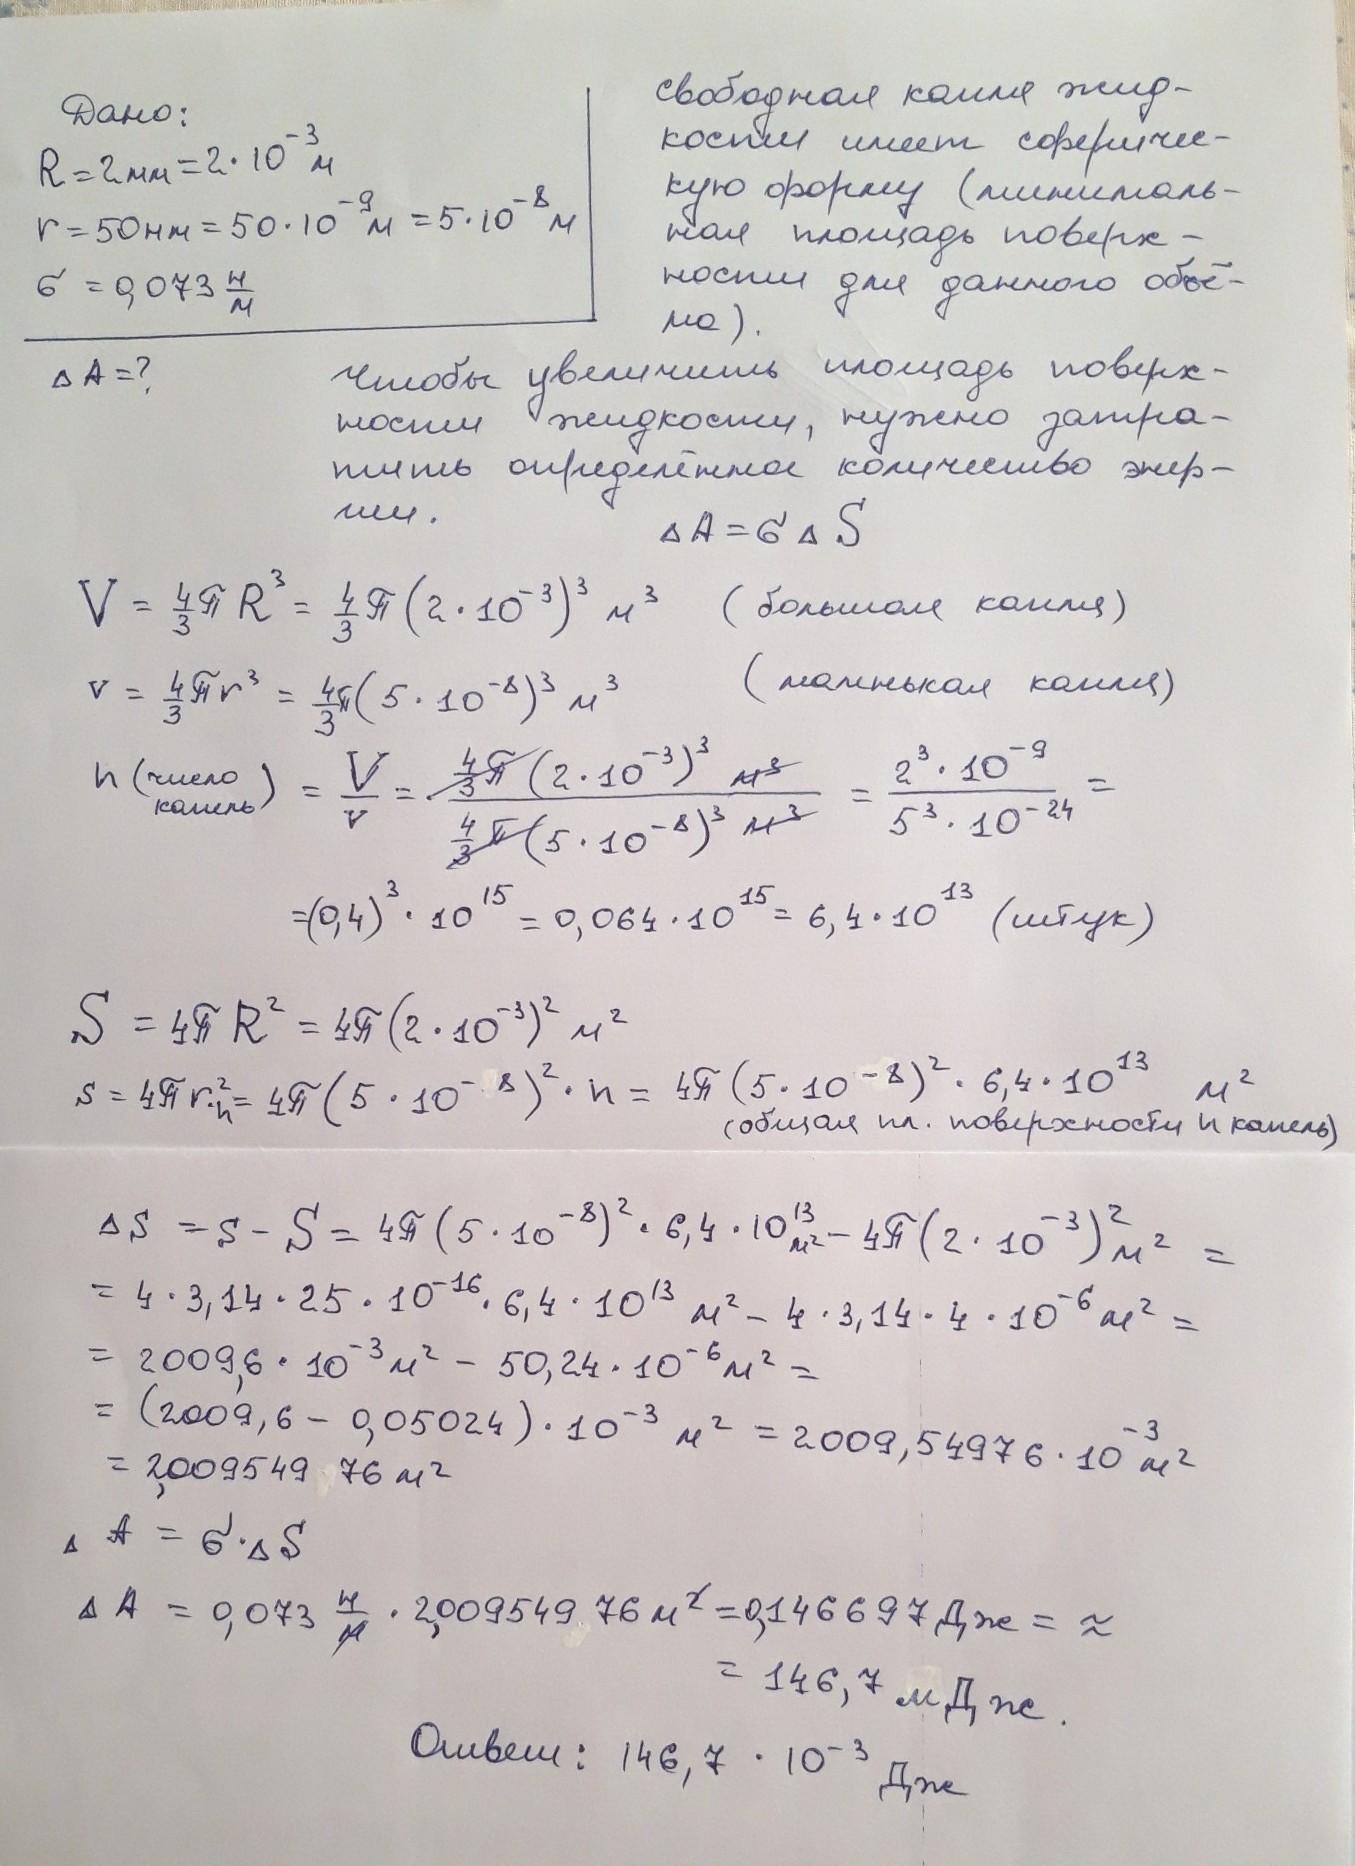 Дано:
R = 2мм = 2·10⁻³ м
r = 50нм = 50·10⁻⁹ м = 5·10⁻⁸ м
σ = 0,073 Н/м
ΔA = ?
свободная капля жид-
кости имеет сфериче-
кую форму (минималь-
ная площадь поверх-
ности для данного объё-
ма).
Чтобы увеличить площадь поверх-
ности жидкости, нужно затра-
тить определённое количество энер-
гии.
ΔA = σ Δ S
V = 4/3 π R³ = 4/3 π (2·10⁻³)³ м³ (большая капля)
v = 4/3 π r³ = 4/3 π (5·10⁻⁸)³ м³ (маленькая капля)
n (число капель) = V/v = 4/3 π (2·10⁻³)³ м³ / 4/3 π (5·10⁻⁸)³ м³ = 2³·10⁻⁹ / 5³·10⁻²⁴ =
= (0,4)³·10¹⁵ = 0,064·10¹⁵ = 6,4·10¹³ (штук)
S = 4π R² = 4π (2·10⁻³)² м²
s = 4π r²·n = 4π (5·10⁻⁸)²·n = 4π (5·10⁻⁸)²·6,4·10¹³ м²
(общая пл. поверхности n капель)
ΔS = s − S = 4π (5·10⁻⁸)²·6,4·10¹³ м² − 4π (2·10⁻³)² м² =
= 4·3,14·25·10⁻¹⁶·6,4·10¹³ м² − 4·3,14·4·10⁻⁶ м² =
= 2009,6·10⁻³ м² − 50,24·10⁻⁶ м² =
= (2009,6 − 0,05024)·10⁻³ м² = 2009,54976·10⁻³ м²
= 2,009549 76 м²
Δ A = σ·ΔS
Δ A = 0,073 Н/м · 2,009549 76 м² = 0,146697 Дж = ≈
= 146,7 мДж.
Ответ: 146,7 · 10⁻³ Дж